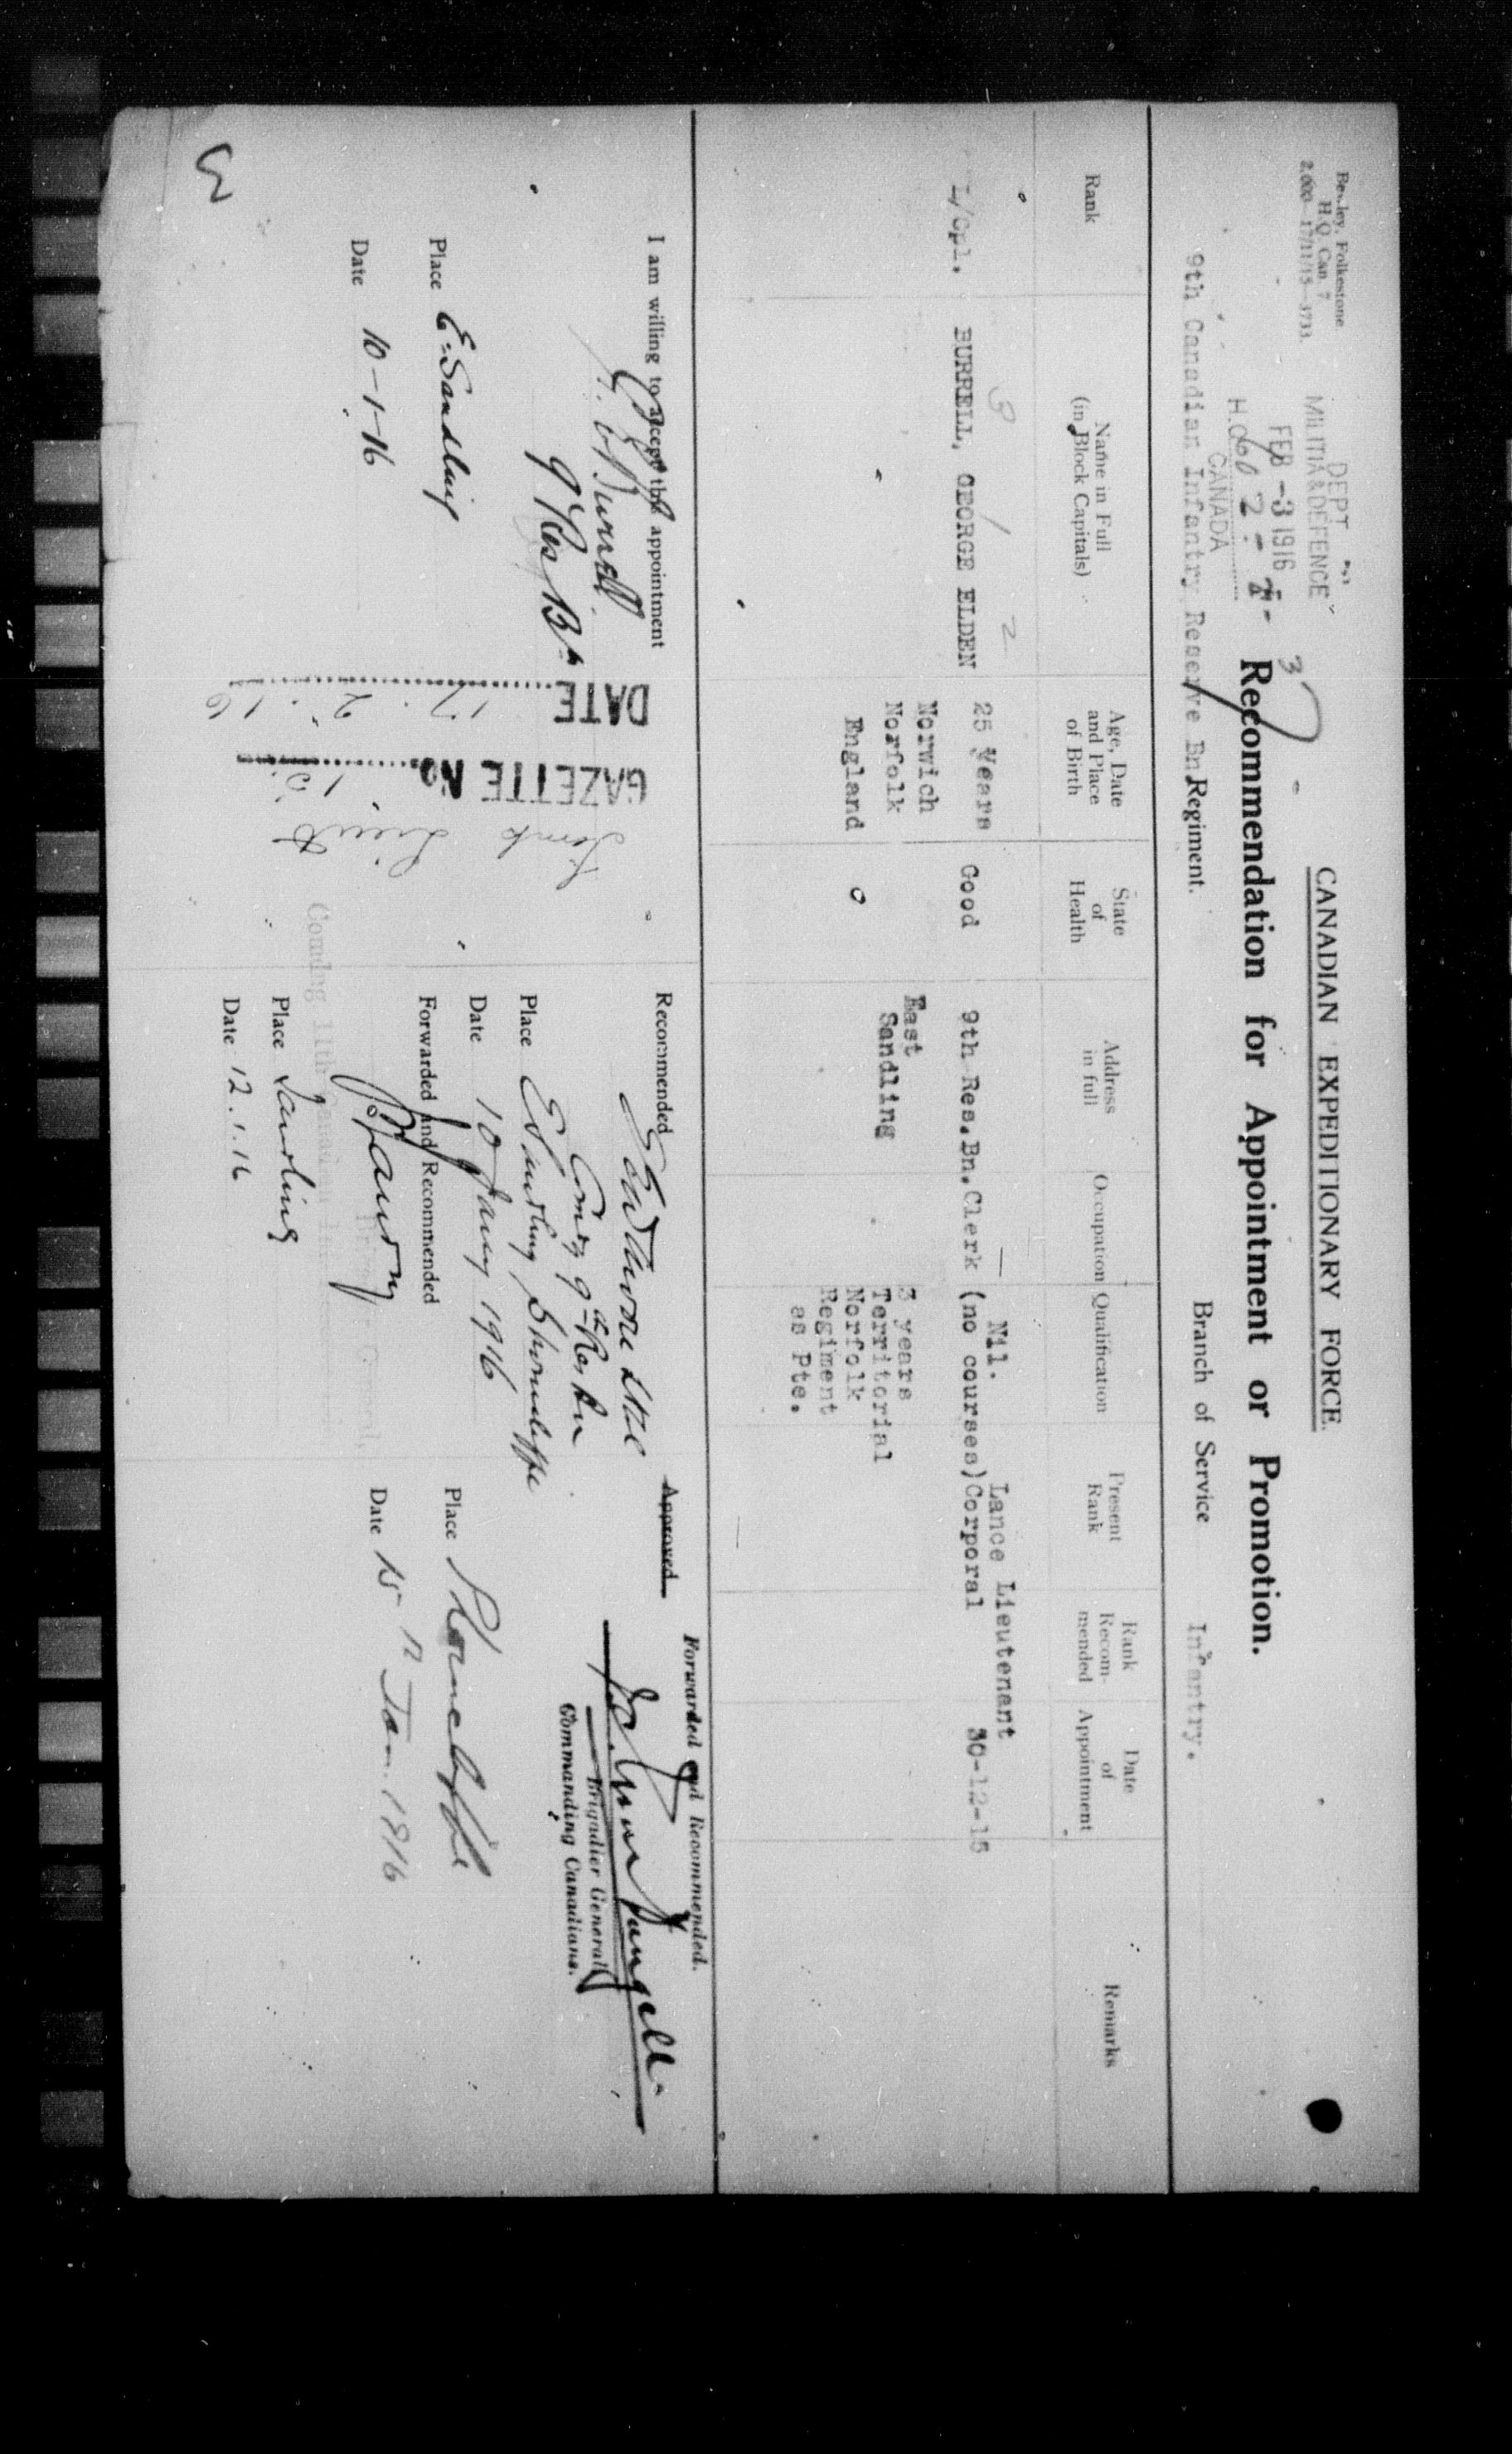 Bewley, Folkestone.
H.Q. Can. 7
2,000—17/11/15—3733.
DEPT
MILITIA & DEFENCE
FEB -3 1916
H.Q. 602-
CANADA
CANADIAN EXPEDITIONARY FORCE.
Recommendation for Appointment or Promotion.
9th Canadian Infantry Reserve Bn Regiment. Branch of Service Infantry.
Rank
Name in Full
(in Block Capitals)
Age, Date
and Place
of Birth
State
of
Health
Address
in full
Occupation
Qualification
Present
Rank
Rank
Recom-
mended
Date
of
Appointment
Remarks
L/Cpl.
BURRELL, GEORGE ELDEN
25 Years
Norwich
Norfolk
England
Good
9th Res.Bn.
East
Sandling
Clerk
Nil.
(no courses)
3 years
Territorial
Norfolk
Regiment
as Pte.
Lance
Corporal
Lieutenant
30-12-15
I am willing to accept this appointment
G. E. Burrell
9 Res Bn
Place E. Sandling
Date 10-1-16
DATE 17. 2. 16
GAZETTE No. 15
Temp Lieut
3
Recommended
Comdg 9th Res Bn
Place E Sandling Shorncliffe
Date 10 Jany 1916
Forwarded and Recommended
Comdg 11th Canadian
Place Sandling
Date 12.1.16
Approved
Forwarded and Recommended.
Brigadier General
Commanding Canadians.
Place Shorncliffe
Date Jan. 1916